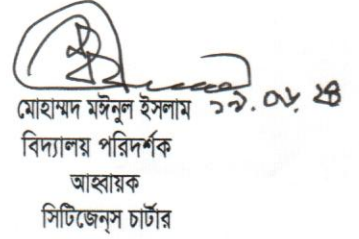 মোহাম্মদ মঈনুল ইসলাম
বিদ্যালয় পরিদর্শক
আহ্বায়ক
সিটিজেন্‌স চার্টার